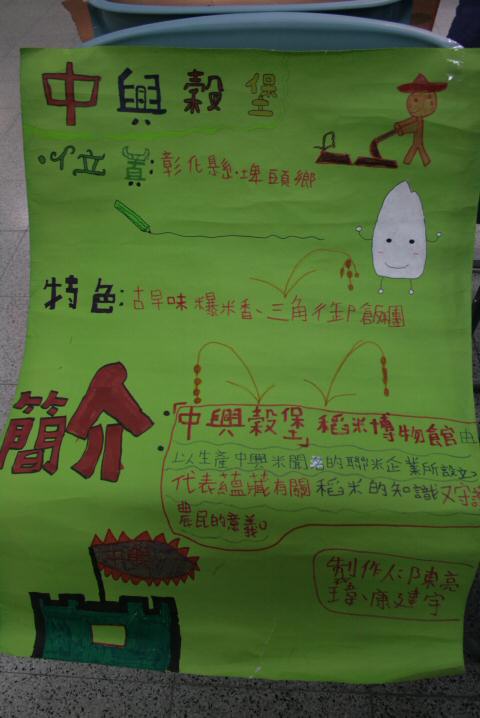 中興穀堡
位置:彰化縣埤頭鄉
特色:古早味爆米香、三角御飯團
簡介:
「中興穀堡」稻米博物館由
以生產中興米聞名的聯米企業所設立
代表蘊藏有關稻米的知識又守護
農民的意義。
中興
製作人:陳亮
瑋、康建宇